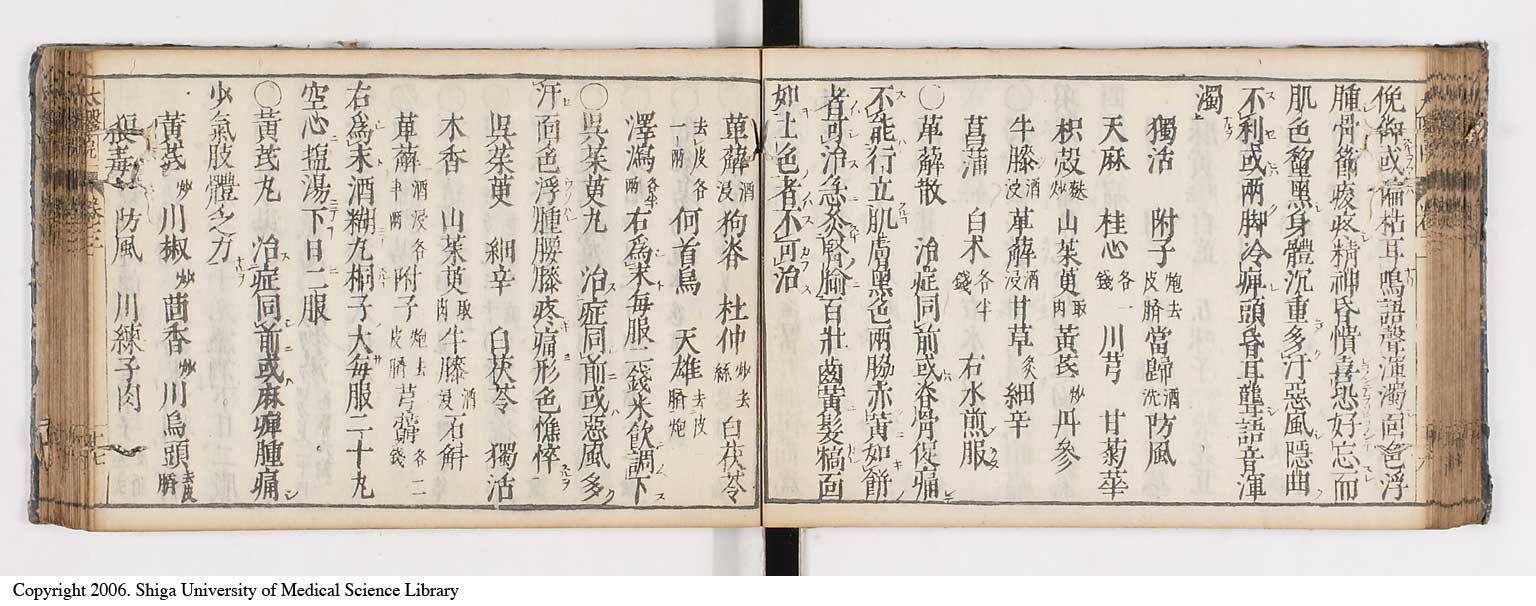 俛仰或偏枯耳鳴語聲渾濁面色浮
腫骨節痠疼精神昏憒喜恐好忘而
肌色黧黑身體沉重多汗惡風隱曲
不利或兩脚冷痺頭昏耳聾語音渾
濁
獨活 附子炮去皮臍當歸酒洗防風
天麻 桂心各一錢 川芎 甘菊華
枳殼麩炒山茱萸取肉黃芪炒丹參
牛膝酒浸萆薢酒浸甘草炙細辛
菖蒲 白朮各半錢 右水煎服
○萆薢散 治症同前或脊骨促痛
不能行立肌膚黑色兩脇赤黃如餅
者可治急灸腎腧百壯齒黃髮槁面
如土色者不可治
萆薢酒浸狗脊 杜仲炒去絲白茯苓
去皮各一兩 何首烏 天雄去皮臍炮
澤瀉各半兩 右爲末每服二錢米飲調下
○吳茱萸丸 治症同前或惡風多
汗面色浮腫腰膝疼痛形色憔悴
吳茱萸 細辛 白茯苓 獨活
木香 山茱萸取肉牛膝酒浸石斛
萆薢酒浸各半兩附子炮去皮臍芎藭各二錢
右爲末酒糊丸桐子大每服二十丸
空心搵湯下日二服
○黃芪丸 治症同前或麻痺腫痛
少氣肢體乏力
黃芪炒川椒炒茴香炒川烏頭去皮臍
防風 川練子肉